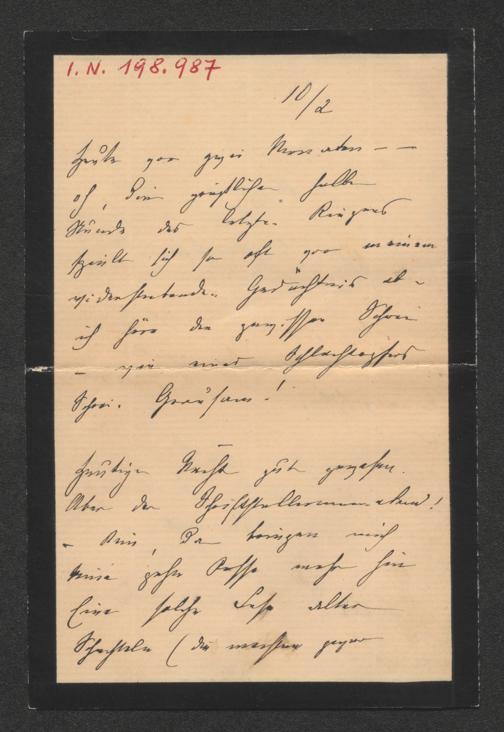 I. N. 198.987
10/2
Heute vor zwei Monaten — —
oh, die gräßliche halbe
Stunde des letzten Ringens
spielt sich so oft vor meinem
widerstrebenden Gedächtnis ab -
ich höre den gewissen Schrei
- wie eines Schlachtopfers
Schrei. Grausam!
Heutige Nacht gut gewesen.
Aber der Schriftstellerinnenabend!
- Nein, da bringen mich
keine zehn Rosse mehr hin
Eine solche alter
Schachteln (die meisten gegen